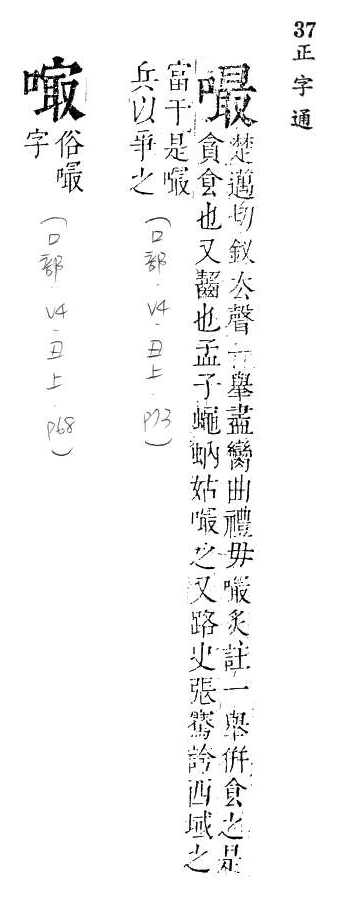 37
正字通
嘬
楚邁切釵去聲一舉盡臠曲禮毋嘬炙註一舉併食之是
貪食也又齧也孟子蠅蚋姑嘬之又路史張騫誇西域之
富于是嘬
兵以爭之
(口部.V4.丑上.P73)
㘝
俗嘬
字
(口部.V4.丑上.P68)